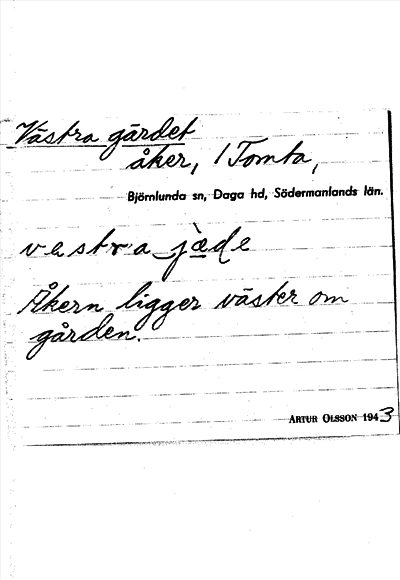 Västra gärdet
åker, 1 Tomta,
Björnlunda sn, Daga hd, Södermanlands län.
vestra jæ̀de
Åkern ligger väster om
gården.
ARTUR OLSSON 1943